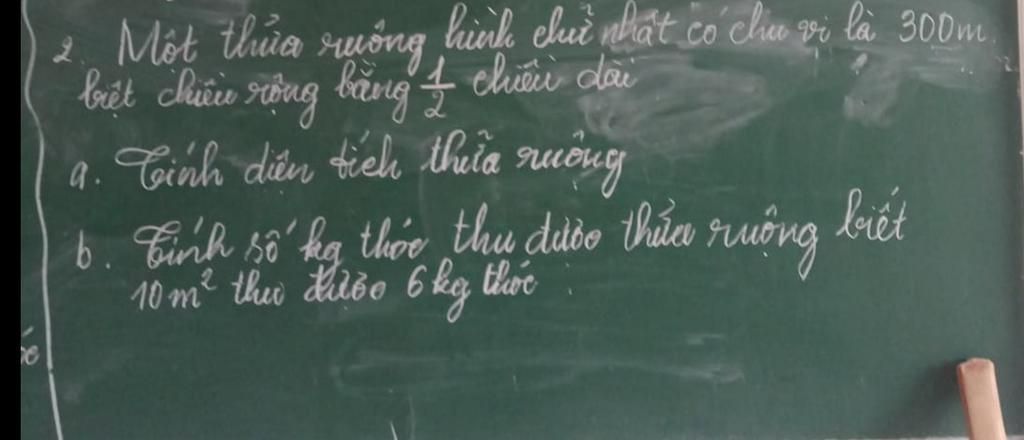 2. Một thửa ruộng hình chữ nhật có chu vi là 300m
biết chiều rộng bằng 1/2 chiều dài
a. Tính diện tích thửa ruộng
b. Tính số kg thóc thu được thửa ruộng biết
10m² thu được 6kg thóc